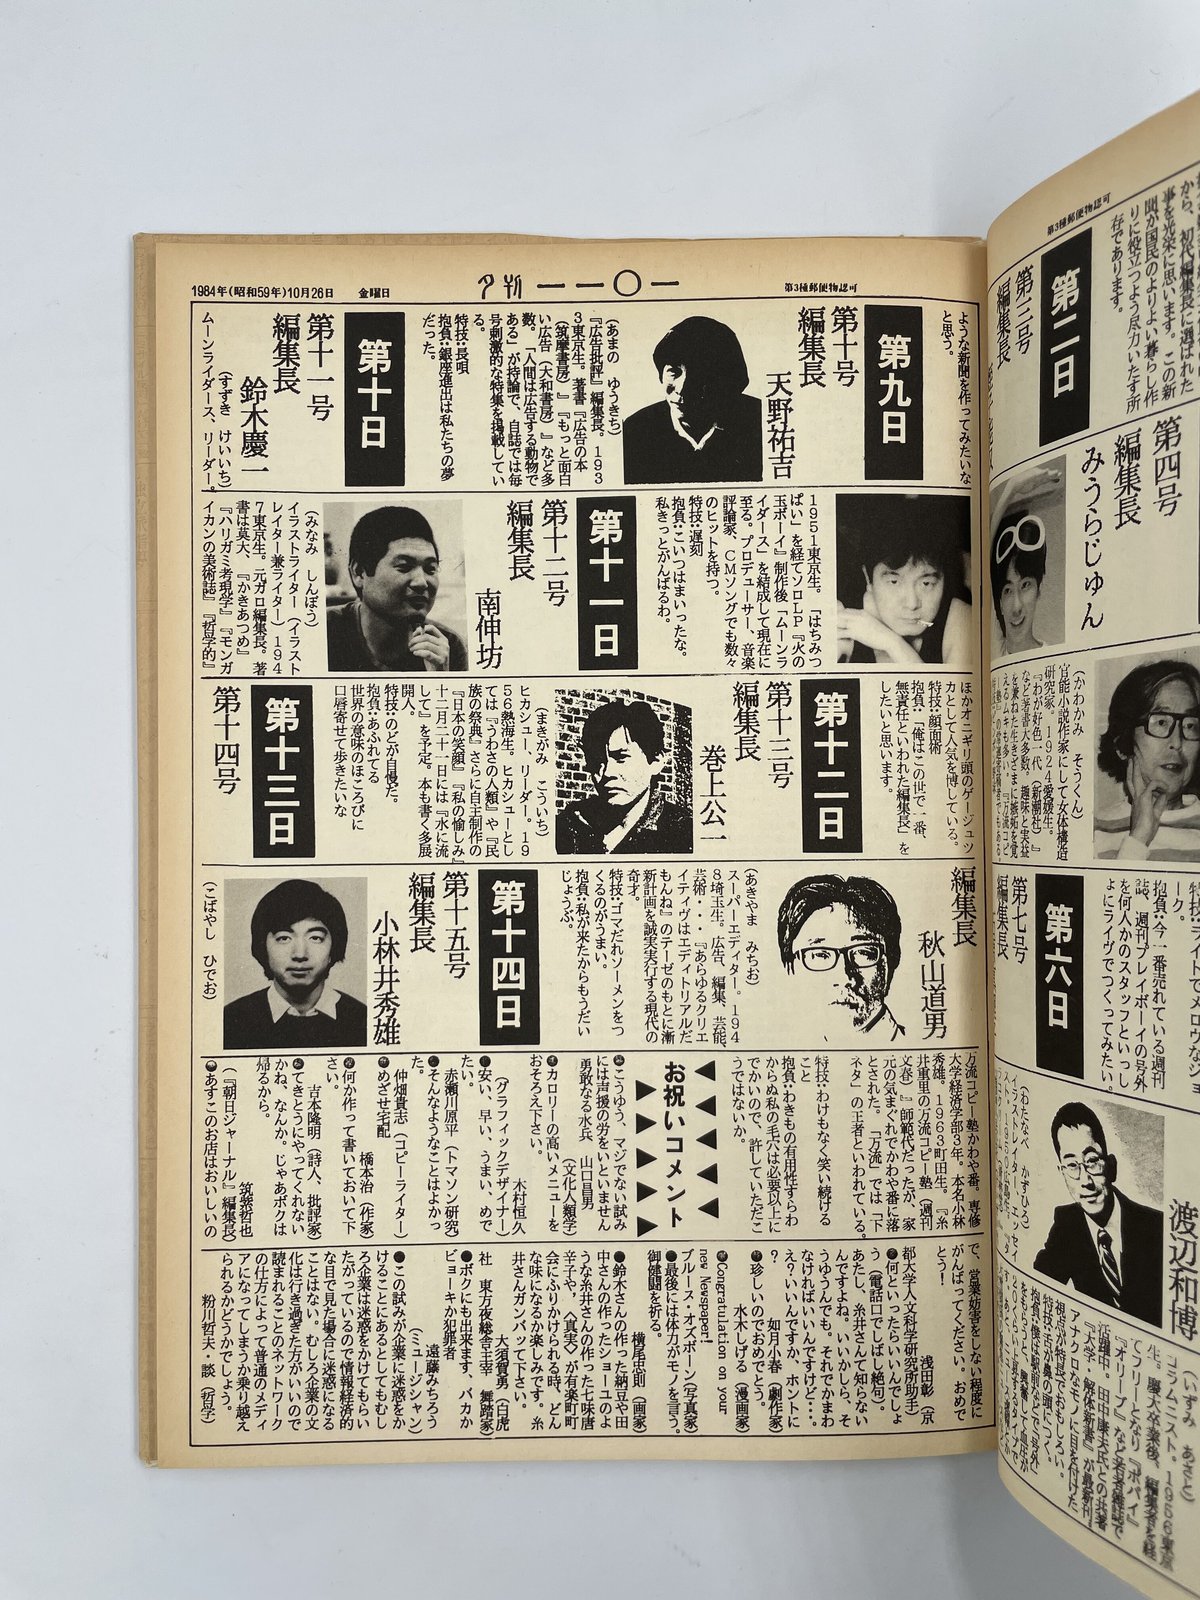 1984年(昭和59年)10月26日　金曜日
夕刊 一一〇一
第3種郵便物認可
ような新聞を作ってみたいな
と思う。
第九日
第十号
編集長
天野祐吉
(あまの　ゆうきち)
『広告批評』編集長。193
3東京生。著書『広告の本
(筑摩書房)』『もっと面白
い広告(大和書房)』など多
数。「人間は広告する動物で
ある」が持論で、自誌では毎
号刺激的な特集を掲載してい
る。
特技：長唄
抱負：銀座進出は私たちの夢
だった。
第十日
第十一号
編集長
鈴木慶一
(すずき　けいいち)
ムーンライダース、リーダー。
1951東京生。「はちみつ
ぱい」を経てソロLP『火の
玉ボーイ』制作後「ムーンラ
イダース」を結成して現在に
至る。プロデューサー、音楽
評論家、CMソングでも数々
のヒットを持つ。
特技：遅刻
抱負：こいつはまいったな。
私きっとがんばるわ。
第十一日
第十二号
編集長
南伸坊
(みなみ　しんぼう)
イラストライター(イラスト
レイター兼ライター)194
7東京生。元ガロ編集長。著
書は莫大、『かきあつめ』
『ハリガミ考現学』『モンガ
イカンの美術誌』『哲学的』
ほかオニギリ頭のゲージュツ
カとして人気を博している。
特技：顔面術
抱負：「俺はこの世で一番、
無責任といわれた編集長」を
したいと思います。
第十二日
第十三号
編集長
巻上公一
(まきがみ　こういち)
ヒカシュー、リーダー。19
56熱海生。ヒカシューとし
ては『うわさの人類』や『民
族の祭典』さらに自主制作の
『日本の笑顔』『私の愉しみ』
十二月二十一日には『水に流
して』を予定。本も書く多展
開人。
特技：のどが自慢だ。
抱負：あふれてる
世界の意味のほころびに
口唇寄せて歩きたいな
第十三日
第十四号
編集長
秋山道男
(あきやま　みちお)
スーパーエディター。194
8埼玉生。広告、編集、芸能、
芸術・・『あらゆるクリエ
イティヴはエディトリアルだ
もんね』のテーゼのもとに漸
新計画を誠実実行する現代の
奇才。
特技：ゴマだれソーメンをつ
くるのがうまい。
抱負：私が来たからもうだい
じょうぶ。
第十四日
第十五号
編集長
小林井秀雄
(こばやし　ひでお)
万流コピー塾かわや番。専修
大学経済学部3年。本名小林
秀雄。1963町田生。『糸
井重里の万流コピー塾(週刊
文春)』師範代だったが、家
元の気まぐれでかわや番に落
とされた。「万流」では「下
ネタ」の王者といわれている。
特技：わけもなく笑い続ける
こと
抱負：わきもの有用性すらわ
からぬ私の毛穴は必要以上に
でかいので、許していただこ
うではないか。
お祝いコメント
●こうゆう、マジでない試み
には声援の労をいといません
勇敢なる水兵　山口昌男
(文化人類学)
●カロリーの高いメニューを
おそろえ下さい。
木村恒久
(グラフィックデザイナー)
●安い、早い、うまい、めで
たい。
赤瀬川原平(トマソン研究)
●そんなようなことはよかっ
た。
仲畑貴志(コピーライター)
●めざせ宅配
橋本治(作家)
●何か作って書いておいて下
さい。
吉本隆明(詩人、批評家)
●てきとうにやってくれない
かね、なんか。じゃあボクは
帰るから。
筑紫哲也
(『朝日ジャーナル』編集長)
●あすこのお店はおいしいの
で、営業妨害をしない程度に
がんばってください。おめで
とう！
浅田彰(京
都大学人文科学研究所助手)
●何といったらいいんでしょ
う(電話口でしばし絶句)。
あたし、糸井さんて知らない
んですよね。いいかしら、そ
うゆうんでも。それでかまわ
なければいいんですけど・・・。
え？いいんですか、ホントに
？　如月小春(劇作家)
●珍しいのでおめでとう。
水木しげる(漫画家)
●Congratulation on your
new Newspaper!
ブルース・オズボーン(写真家)
●最後には体力がモノを言う。
御健闘を祈る。
横尾忠則(画家)
●鈴木さんの作った納豆や田
中さんの作ったショーユのよ
うな糸井さんの作った七味唐
辛子や、〈真実〉が有楽町町
会にふりかけられる時、どん
な味になるか楽しみです。糸
井さんガンバッて下さい。
大須賀勇(白虎
社　東方夜総会主宰　舞踏家)
●ボクにも出来ます、バカか
ビョーキか犯罪者
遠藤みちろう
(ミュージシャン)
●この試みが企業に迷惑をか
けることにあるとしてもむし
ろ企業は迷惑をかけてもらい
たがっているので情報経済的
な目で見た場合に迷惑になる
ことはない。むしろ企業の文
化は行き過ぎた方がいいので
読まれることのネットワーク
の仕方によって普通のメディ
アになってしまうか乗り越え
られるかどうかでしょう。
粉川哲夫・談(哲学)
第3種郵便物認可
から、初代編集長に選ばれた
事を光栄に思います。この新
聞が国民のよりよい暮らし作
りに役立つよう尽力いたす所
存であります。
第二日
第三号
編集長
第四号
編集長
みうらじゅん
(かわかみ　そうくん)
官能小説作家にして女体構造
研究家。1924愛媛生。
『わが好色一代(新潮社)』
など著書大多数。趣味と実益
を兼ねた生きざまに嫉妬を覚
えるムキも多い。
抱負：今一番売れている週刊
誌、週刊プレイボーイの号外
を何人かのスタッフといっし
ょにライヴでつくってみたい。
第六日
第七号
編集長
渡辺和博
(わたなべ　かずひろ)
(いずみ　あさと)
コラムニスト。1956東京
生。慶大卒業後、編集者を経
てフリーとなり『ポパイ』
『オリーブ』など若者雑誌で
活躍中。田中康夫氏との共著
『大学・解体新書』が最新刊
アナクロなモノに目を付けた
視点が特長でおもしろい。
特技：舌が鼻の頭につく。